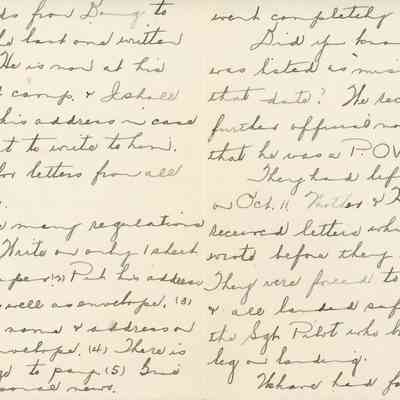 ds from Doug to
last one written
He is now at his
camp. & I shall
his address in case
t to write to him.
for letters from all
many regulations
Write on only 1 sheet
paper (2) Put his address
s well as envelope. (3)
name & address on
envelope. (4) There is
to pay (5) Give
sonal news.
went completely
Did you know
was listed as "mis
that date? He rec
further official no
that he was a P.O.W
They had lef
on Oct. 11 Mother & 
received letters whi
wrote before they
They were forced to
& all landed saf
the Sgt. Pilot who b
leg on landing.
We have had fo